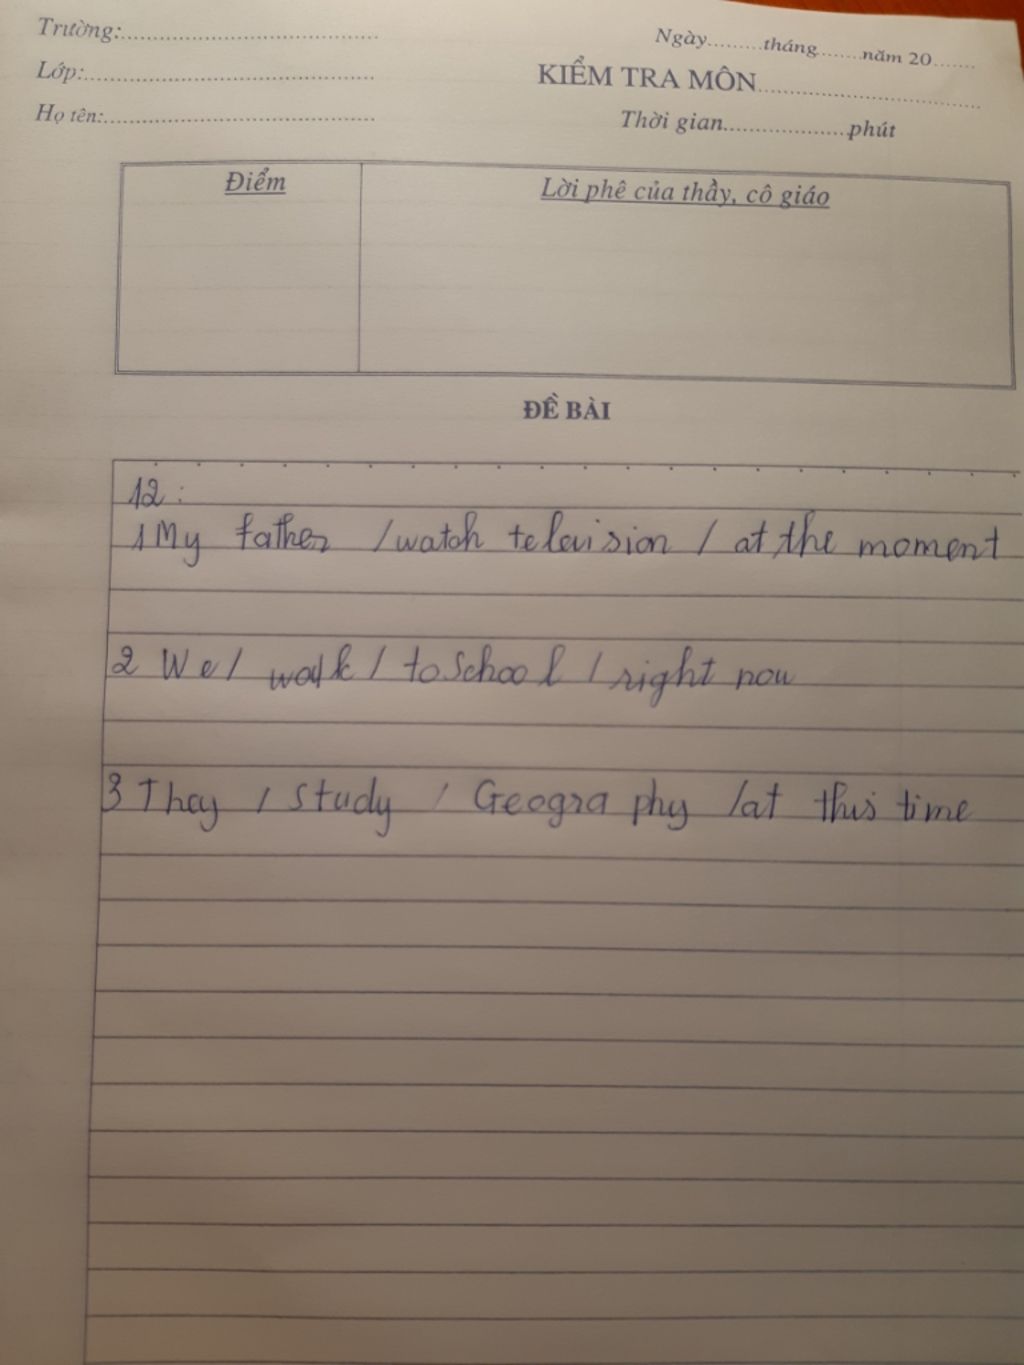 Trường:......................................
Ngày.........tháng.......năm 20.......
Lớp:..........................................
KIỂM TRA MÔN..............................
Họ tên:.......................................
Thời gian...................phút
Điểm
Lời phê của thầy, cô giáo
ĐỀ BÀI
12:
1 My father / watch television / at the moment
2 We / walk / to School / right now
3 They / Study / Geogra phy / at this time